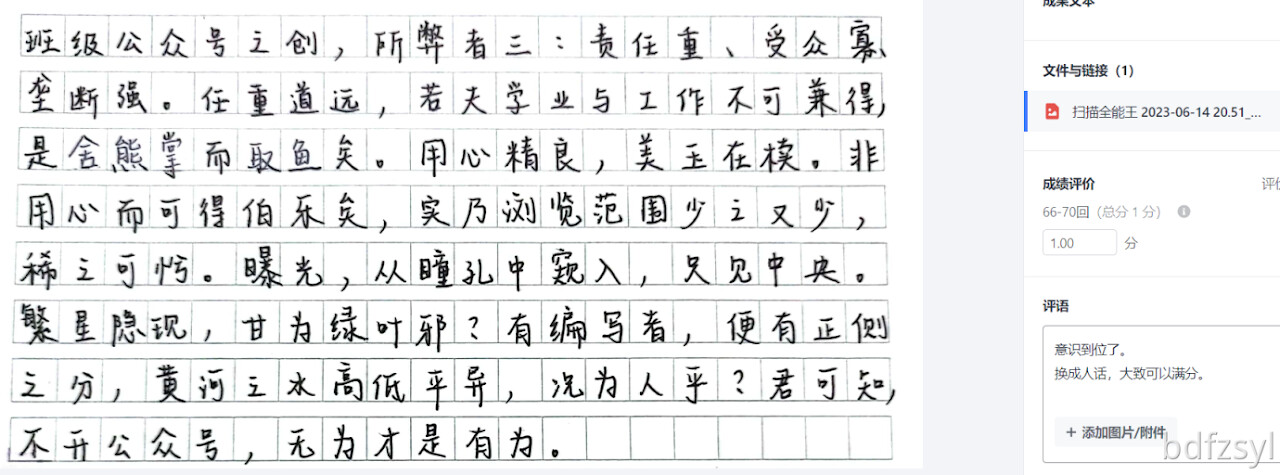 班级公众号之创，所弊者三：责任重、受众寡、
垄断强。任重道远，若夫学业与工作不可兼得，
是舍熊掌而取鱼矣。用心精良，美玉在椟。非
用心而可得伯乐矣，实乃浏览范围少之又少，
稀之可怜。曝光，从瞳孔中窥入，只见中央。
繁星隐现，甘为绿叶邪？有编写者，便有正侧
之分，黄河之水高低平异，况为人乎？君可知，
不开公众号，无为才是有为。
成果文本
文件与链接（1）
扫描全能王 2023-06-14 20.51_...
成绩评价
评价
66-70回（总分 1 分）
1.00 分
评语
意识到位了。
换成人话，大致可以满分。
+ 添加图片/附件
bdfzsyl